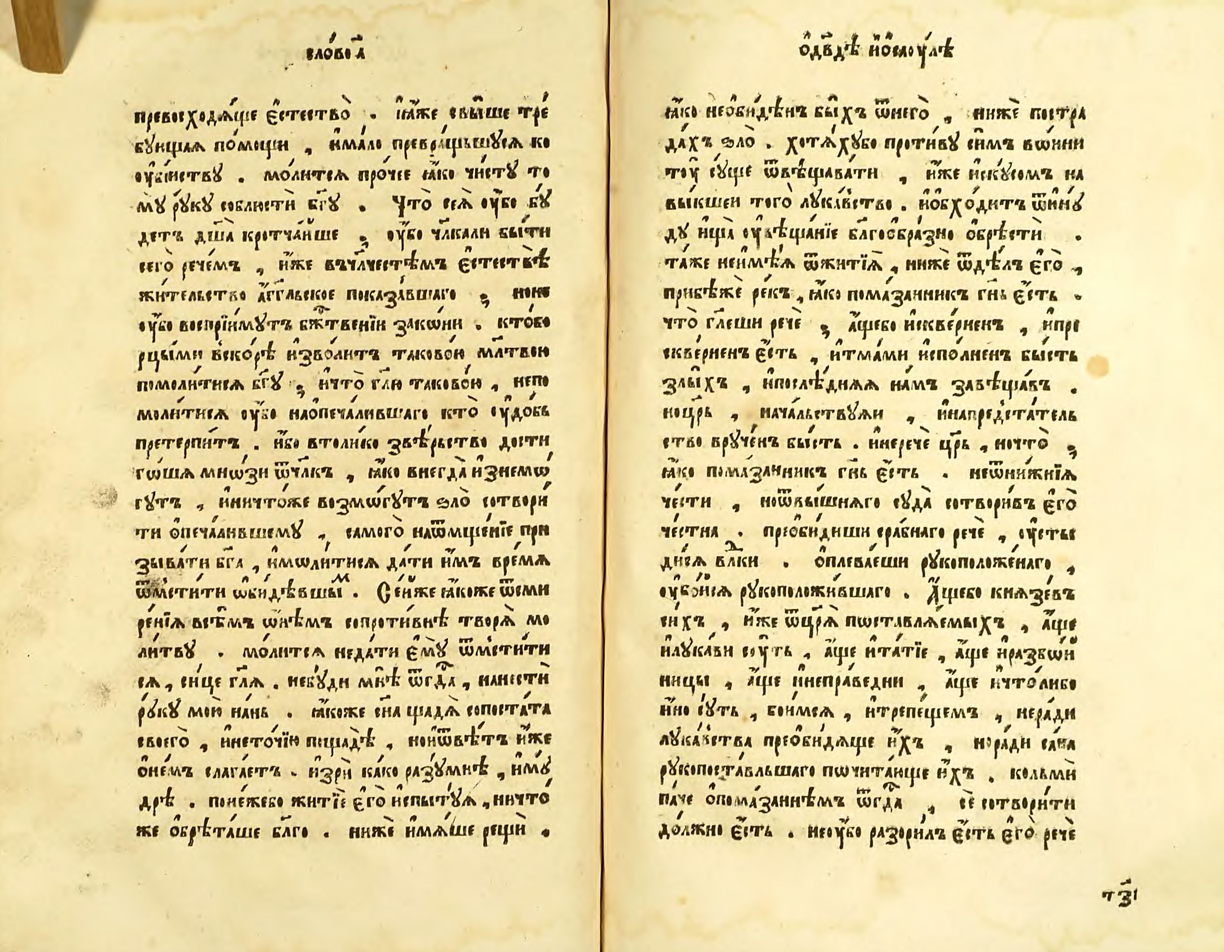 сло́во а҃
превосходѧ́ще є҆стество̀ . ꙗ҆́же свы́ше тре́
бꙋющаѧ по́мощи , и҆ма́ло превра́щьшꙋсѧ ко
оу҆бі́иствꙋ . мо́литсѧ про́чее ꙗ҆́ко чи́стꙋ то
мꙋ̀ рꙋ́кꙋ соблюстѝ бг҃ꙋ . Что̀ сеѧ̀ оу҆́бо бꙋ́
детъ дш҃а̀ кротча́йше ; оу҆́бо чл҃ка ли бы́ти
сего̀ рече́мъ , и҆́же въчл҃честѣ́мъ є҆стествѣ̀
жи́тельство а҆́гг҃льское показа́вшаго ; ное
оу҆́бо воспрїи́мꙋтъ бж҃твенїи зако́ни . кто́бо
рцы́ми вско́рѣ и҆зво́литъ тако́вою мл҃твою
помоли́тисѧ бг҃ꙋ ; и҆что̀ гл҃ю тако́вою , непо
моли́тисѧ оу҆́бо наѡпеча́лившаго кто̀ оу҆до́бь
претерпи́тъ . и҆́бо вто́лико звѣ́рьство дости
го́шѧ мно́зи ѿчл҃къ , ꙗ҆́ко внегда̀ и҆знемѡ́
гꙋтъ , и҆ничто́же возмо́гꙋтъ ѕло̀ сотвори́
ти ѡ҆печа́лившемꙋ , самого̀ наѿмще́нїе при
зыва́ти бг҃а , и҆мѡли́тисѧ да́ти и҆̀мъ вре́мѧ
ѿмсти́ти ѡ҆би́дѣвшы́м . Се́и же ꙗ҆́коже ѿсми
ре́нїѧ всѣ̀мъ ѡ҆́нѣмъ сопроти́внѣ творѧ̀ мо
ли́твꙋ . мо́литсѧ неда́ти є҆мꙋ̀ ѿмсти́ти
сѧ , си́це гл҃ѧ . небꙋ́ди мнѣ̀ ѿгд҃а , нанестѝ
рꙋ́кꙋ мою̀ на́нь . ꙗ҆́коже сн҃а щадѧ̀ сопоста́та
своего̀ , и҆нето́чїю пощадѣ̀ , нои҆ѿвѣ́тъ и҆́же
ѡ҆не́мъ слага́етъ . и҆зрѝ ка́ко разꙋ́мнѣ , и҆мꙋ́
дрѣ . поне́жебо житїѐ є҆гѡ̀ и҆спытꙋ́ѧ , ничто́
же ѡ҆брѣ́таше бл҃го . ни́же и҆мѧ́ше рещѝ .
ѡ҆дв҃дѣ̀ и҆ѡсаоу́лѣ
ꙗ҆́ко неѡби́дѣнъ бы́хъ ѿнего̀ , нижѐ постра
да́хъ ѕло̀ . хотѧ́хꙋбо проти́вꙋ си́мъ вѡ́ини
тоу̀ сꙋ́ще ѿвѣщава́ти , и҆́же и҆скꙋ́сомъ на
вы́кшеи того̀ лꙋка́вство . и҆ѡбхо́дитъ ѿинꙋ́
дꙋ ища̀ оу҆вѣща́нїе бл҃гоѡбра́зно ѡ҆брѣстѝ .
та́же неимѣ́ѧ ѿжитїѧ̀ , ни́же ѿдѣ́лъ є҆гѡ̀ ,
прибѣ́же ре́къ , ꙗ҆́ко пома́занникъ гн҃ь є҆́сть .
что̀ гл҃еши речѐ ; а҆́щебо и҆скве́рненъ , и҆пре
скве́рненъ є҆́сть , и҆тма́ми и҆спо́лненъ бы́сть
злы́хъ , и҆послѣ́днѧѧ на́мъ завѣща́въ .
ноцр҃ь , нача́льствꙋѧи , и҆напредста́тель
ство врꙋче́нъ бы́сть . и҆неречѐ цр҃ь , ночто̀ ;
ꙗ҆́ко пома́занникъ гн҃ь є҆́сть . неѿни́жнїѧ
че́сти , ноѿвы́шнѧго сꙋда̀ сотвори́въ є҆го̀
че́стна . преѡби́диши сра́бнаго речѐ , оу҆сты
ди́сѧ влⷣки . ѡ҆плева́еши рꙋкоположе́наго ,
оу҆бо́йсѧ рꙋкоположи́вшаго . А҆́щебо кнѧзе́въ
си́хъ , и҆́же ѿцр҃ѧ̀ пѡставлѧ́емыхъ , а҆́ще
и҆лꙋка́ви сꙋ́ть , а҆́ще и҆та́тїе , а҆́ще и҆разбо́и
ницы , а҆́ще и҆непра́ведни , а҆́ще и҆что́либо
и҆́но сꙋ́ть , бои́мсѧ , и҆трепе́щемъ , неради
лꙋка́вства преѡби́дѧще и҆́хъ , норади са́на
рꙋкопоста́вльшаго пѡчита́юще и҆́хъ . кольмѝ
па́че ѡ҆пома́заннѣмъ ѿгд҃а , сѐ сотвори́ти
до́лжно є҆́сть . неоу҆́бо разори́лъ є҆́сть є҆го̀ речѐ
тз҃і